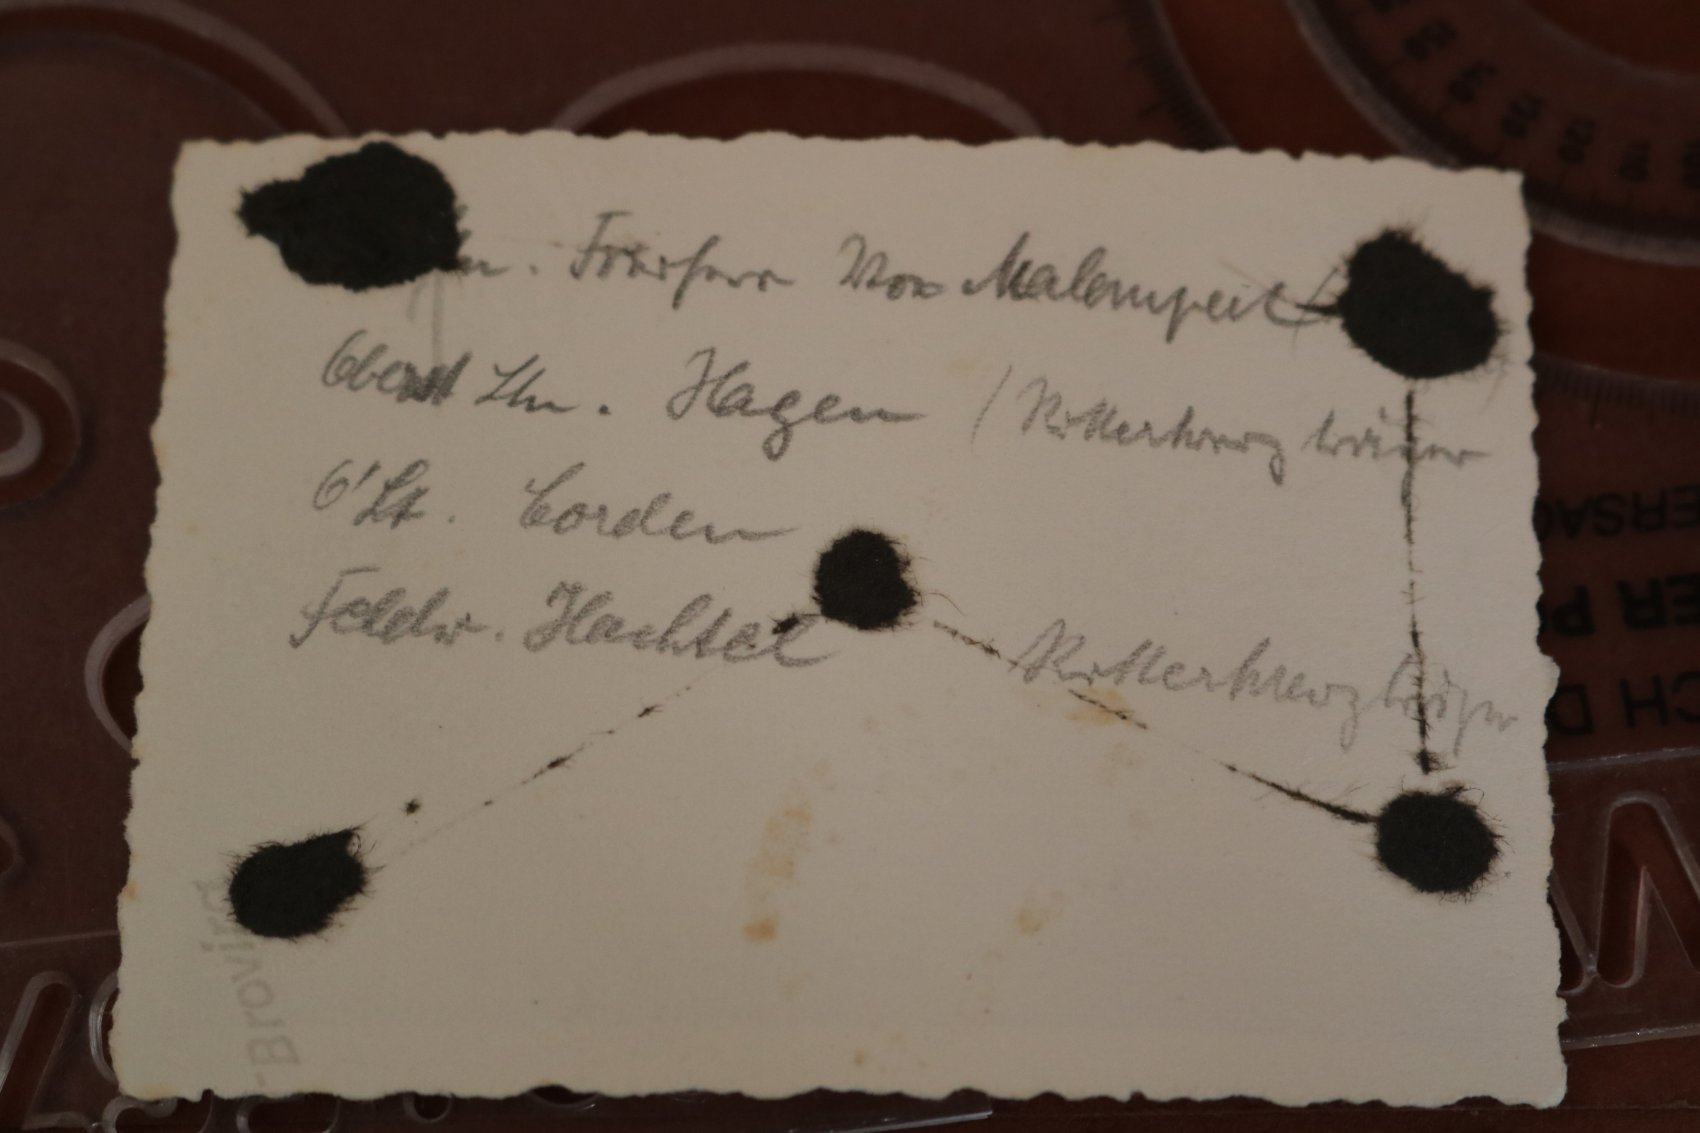 n. Freiherr von Malen
Oberst Ltn. Hagen (Ritterkreuzträger
O'Lt. Corden
Feldw. Hachtel Ritterkreuzträger
-Brovira